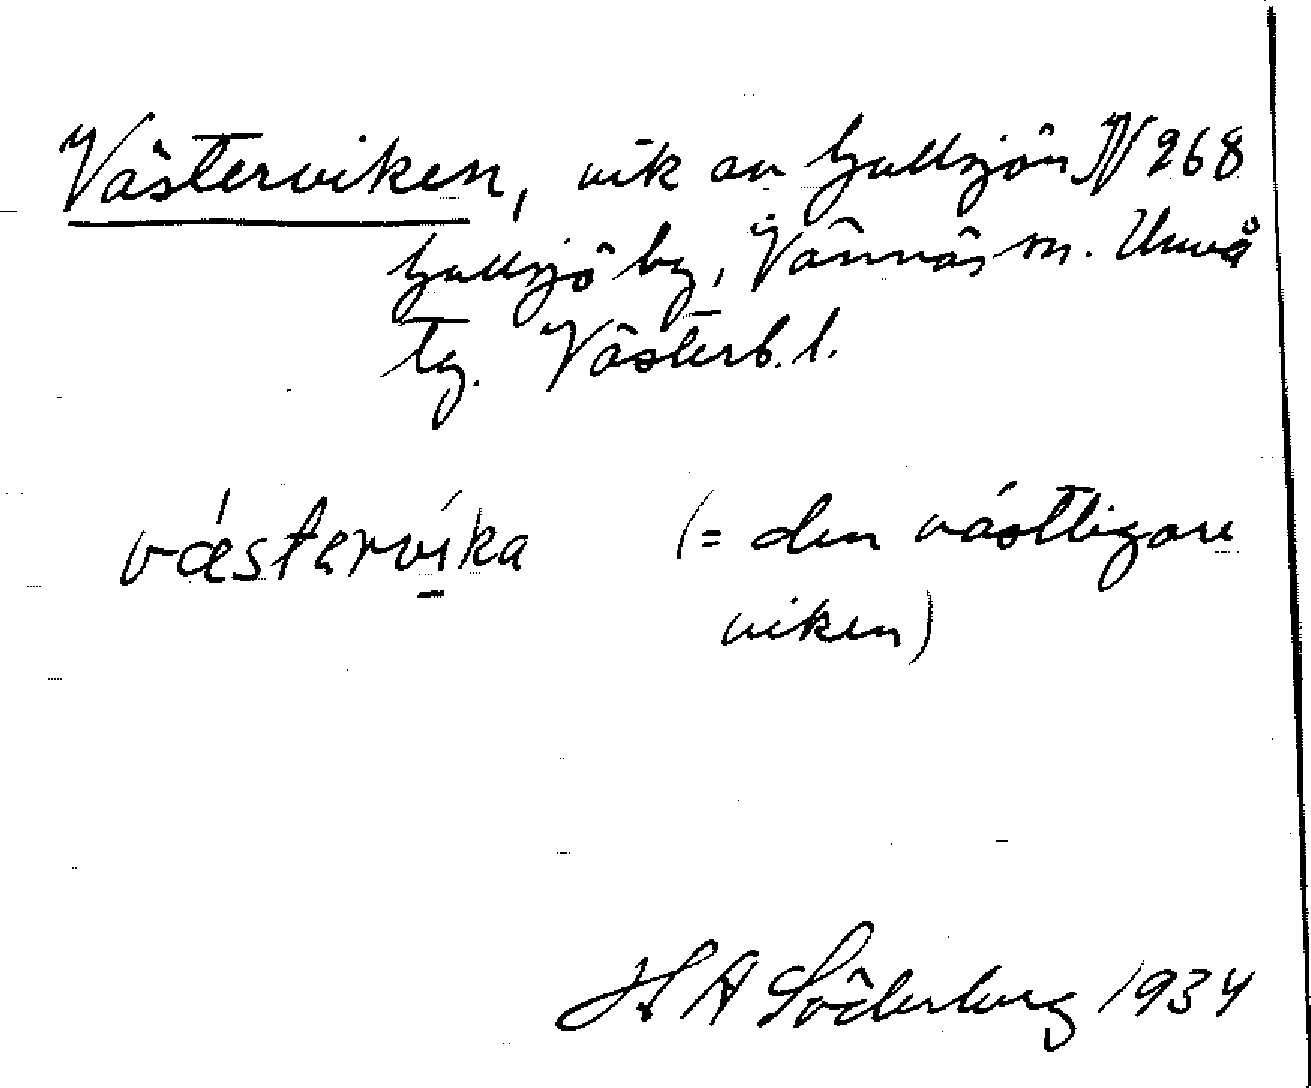 Västerviken, vik av Gullsjön N 268
Gullsjö by, Vännäs sn. Umeå
tg. Västerb. l.
västervika (= den västligare
viken)
H A Söderberg 1934